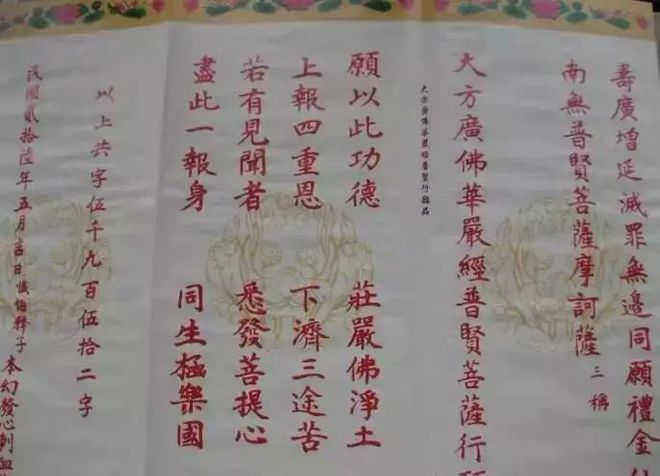 壽廣增延滅罪無邊同願禮金
南無普賢菩薩摩訶薩 三稱
大方廣佛華嚴經普賢菩薩行
大方廣佛華嚴經普賢行願品
願以此功德 莊嚴佛淨土
上報四重恩 下濟三途苦
若有見聞者 悉發菩提心
盡此一報身 同生極樂國
以上共字伍千九百伍拾二字
民國貳拾陸年五月吉日 釋子本幻發心刺血